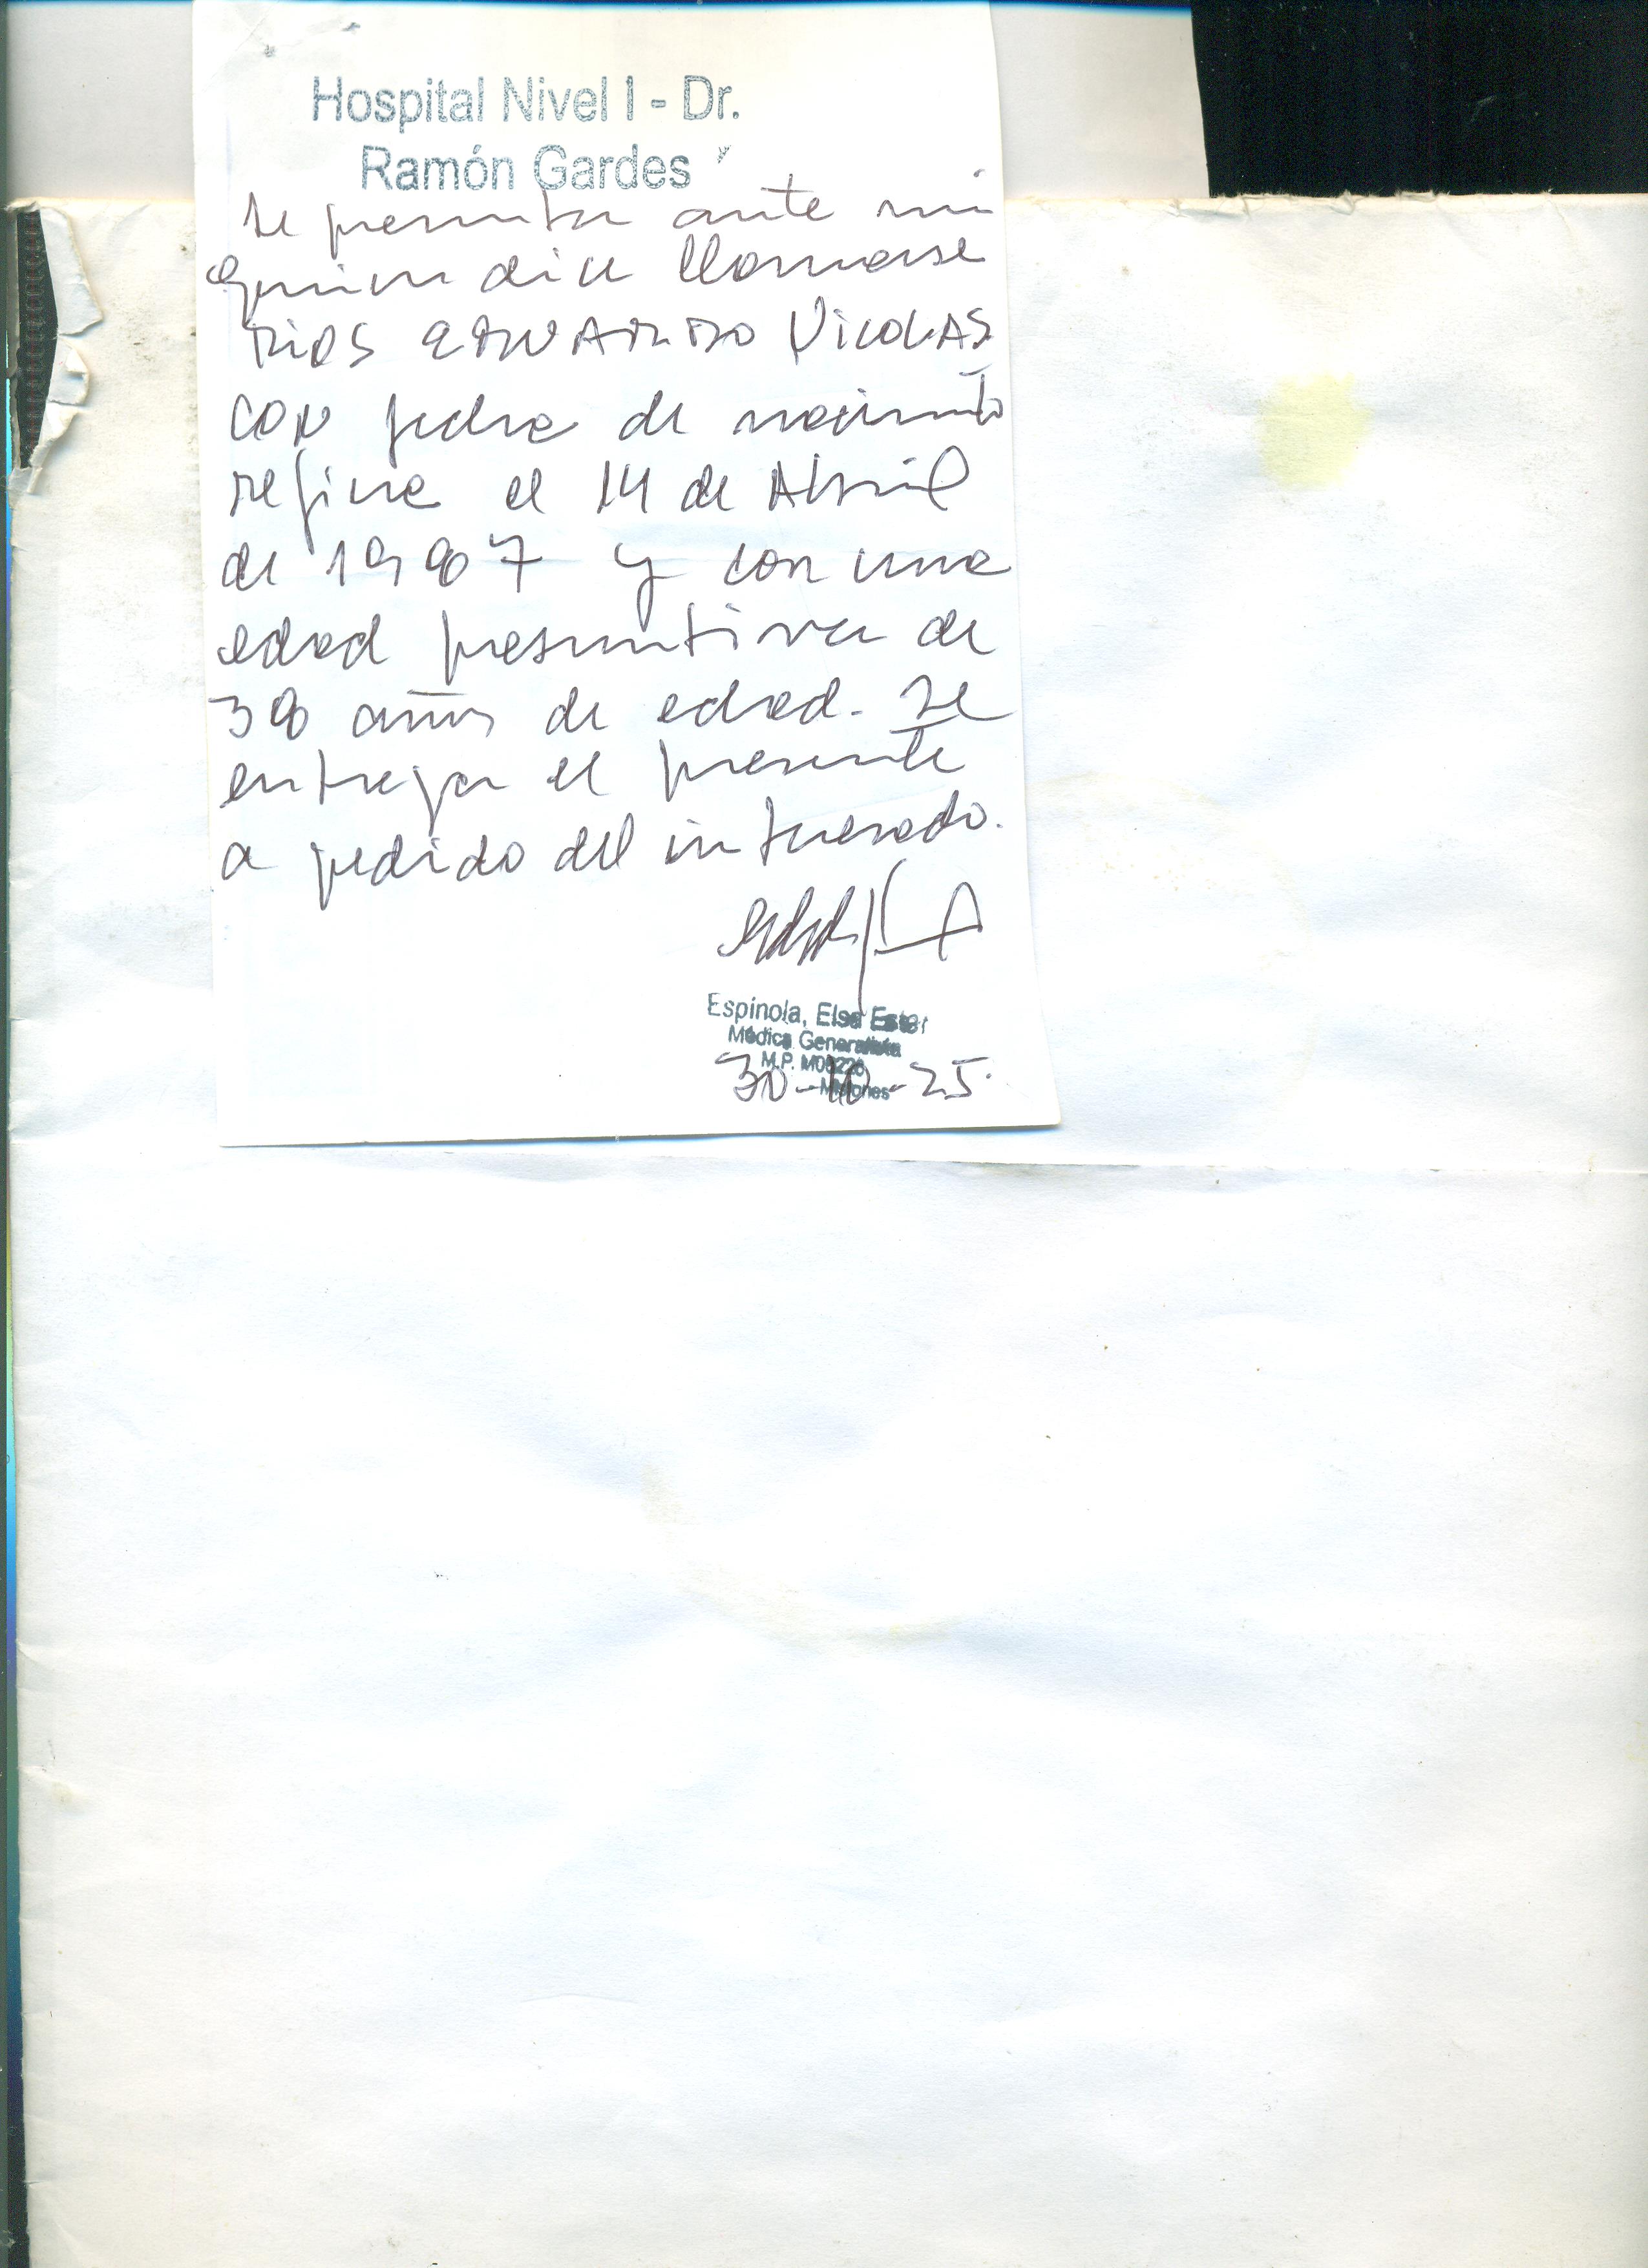 Hospital Nivel I - Dr.
Ramón Gardes
Se presenta ante mi
quien dice llamarse
RIOS EDUARDO NICOLAS
CON fecha de nacimiento
refiere el 14 de Abril
de 1987 y con una
edad presuntiva de
38 años de edad. Se
entrega el presente
a pedido del interesado.
Espínola, Elsa Ester
Médica Generalista
M.P.
Misiones
30-10-25.